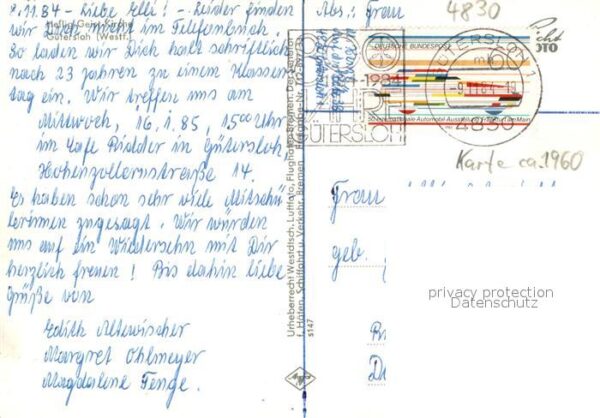 8.11.84 - Liebe Elli! - Leider finden
wir Dich nicht im Telefonbuch.
So laden wir Dich halt schriftlich
nach 23 Jahren zu einem Klassen
tag ein. Wir treffen uns am
Mittwoch, 16.1.85, 15⁰⁰ Uhr
im Cafe Ridder in Gütersloh,
Hohenzollernstraße 14.
Es haben schon sehr viele Mitschü
lerinnen zugesagt. Wir würden
uns auf ein Wiedersehn mit Dir
herzlich freuen! Bis dahin liebe
Grüße von
Edith Altewischer
Margret Ohlmeyer
Magdalene Tenge.
Heilig Geist Kirche
Gütersloh (Westf.)
Urheberrecht Westdtsch. Luftfoto, Flughafen Bremen. Der Senator
f. Häfen, Schiffahrt u. Verkehr, Bremen
s147
Agfa
Abs.: Frau
4830
DEUTSCHE BUNDESPOST
60
GÜTERSLOH 1
4830
1984
GÜTERSLOH
FOTO
Karte ca. 1960
Frau
geb.
privacy protection
Datenschutz